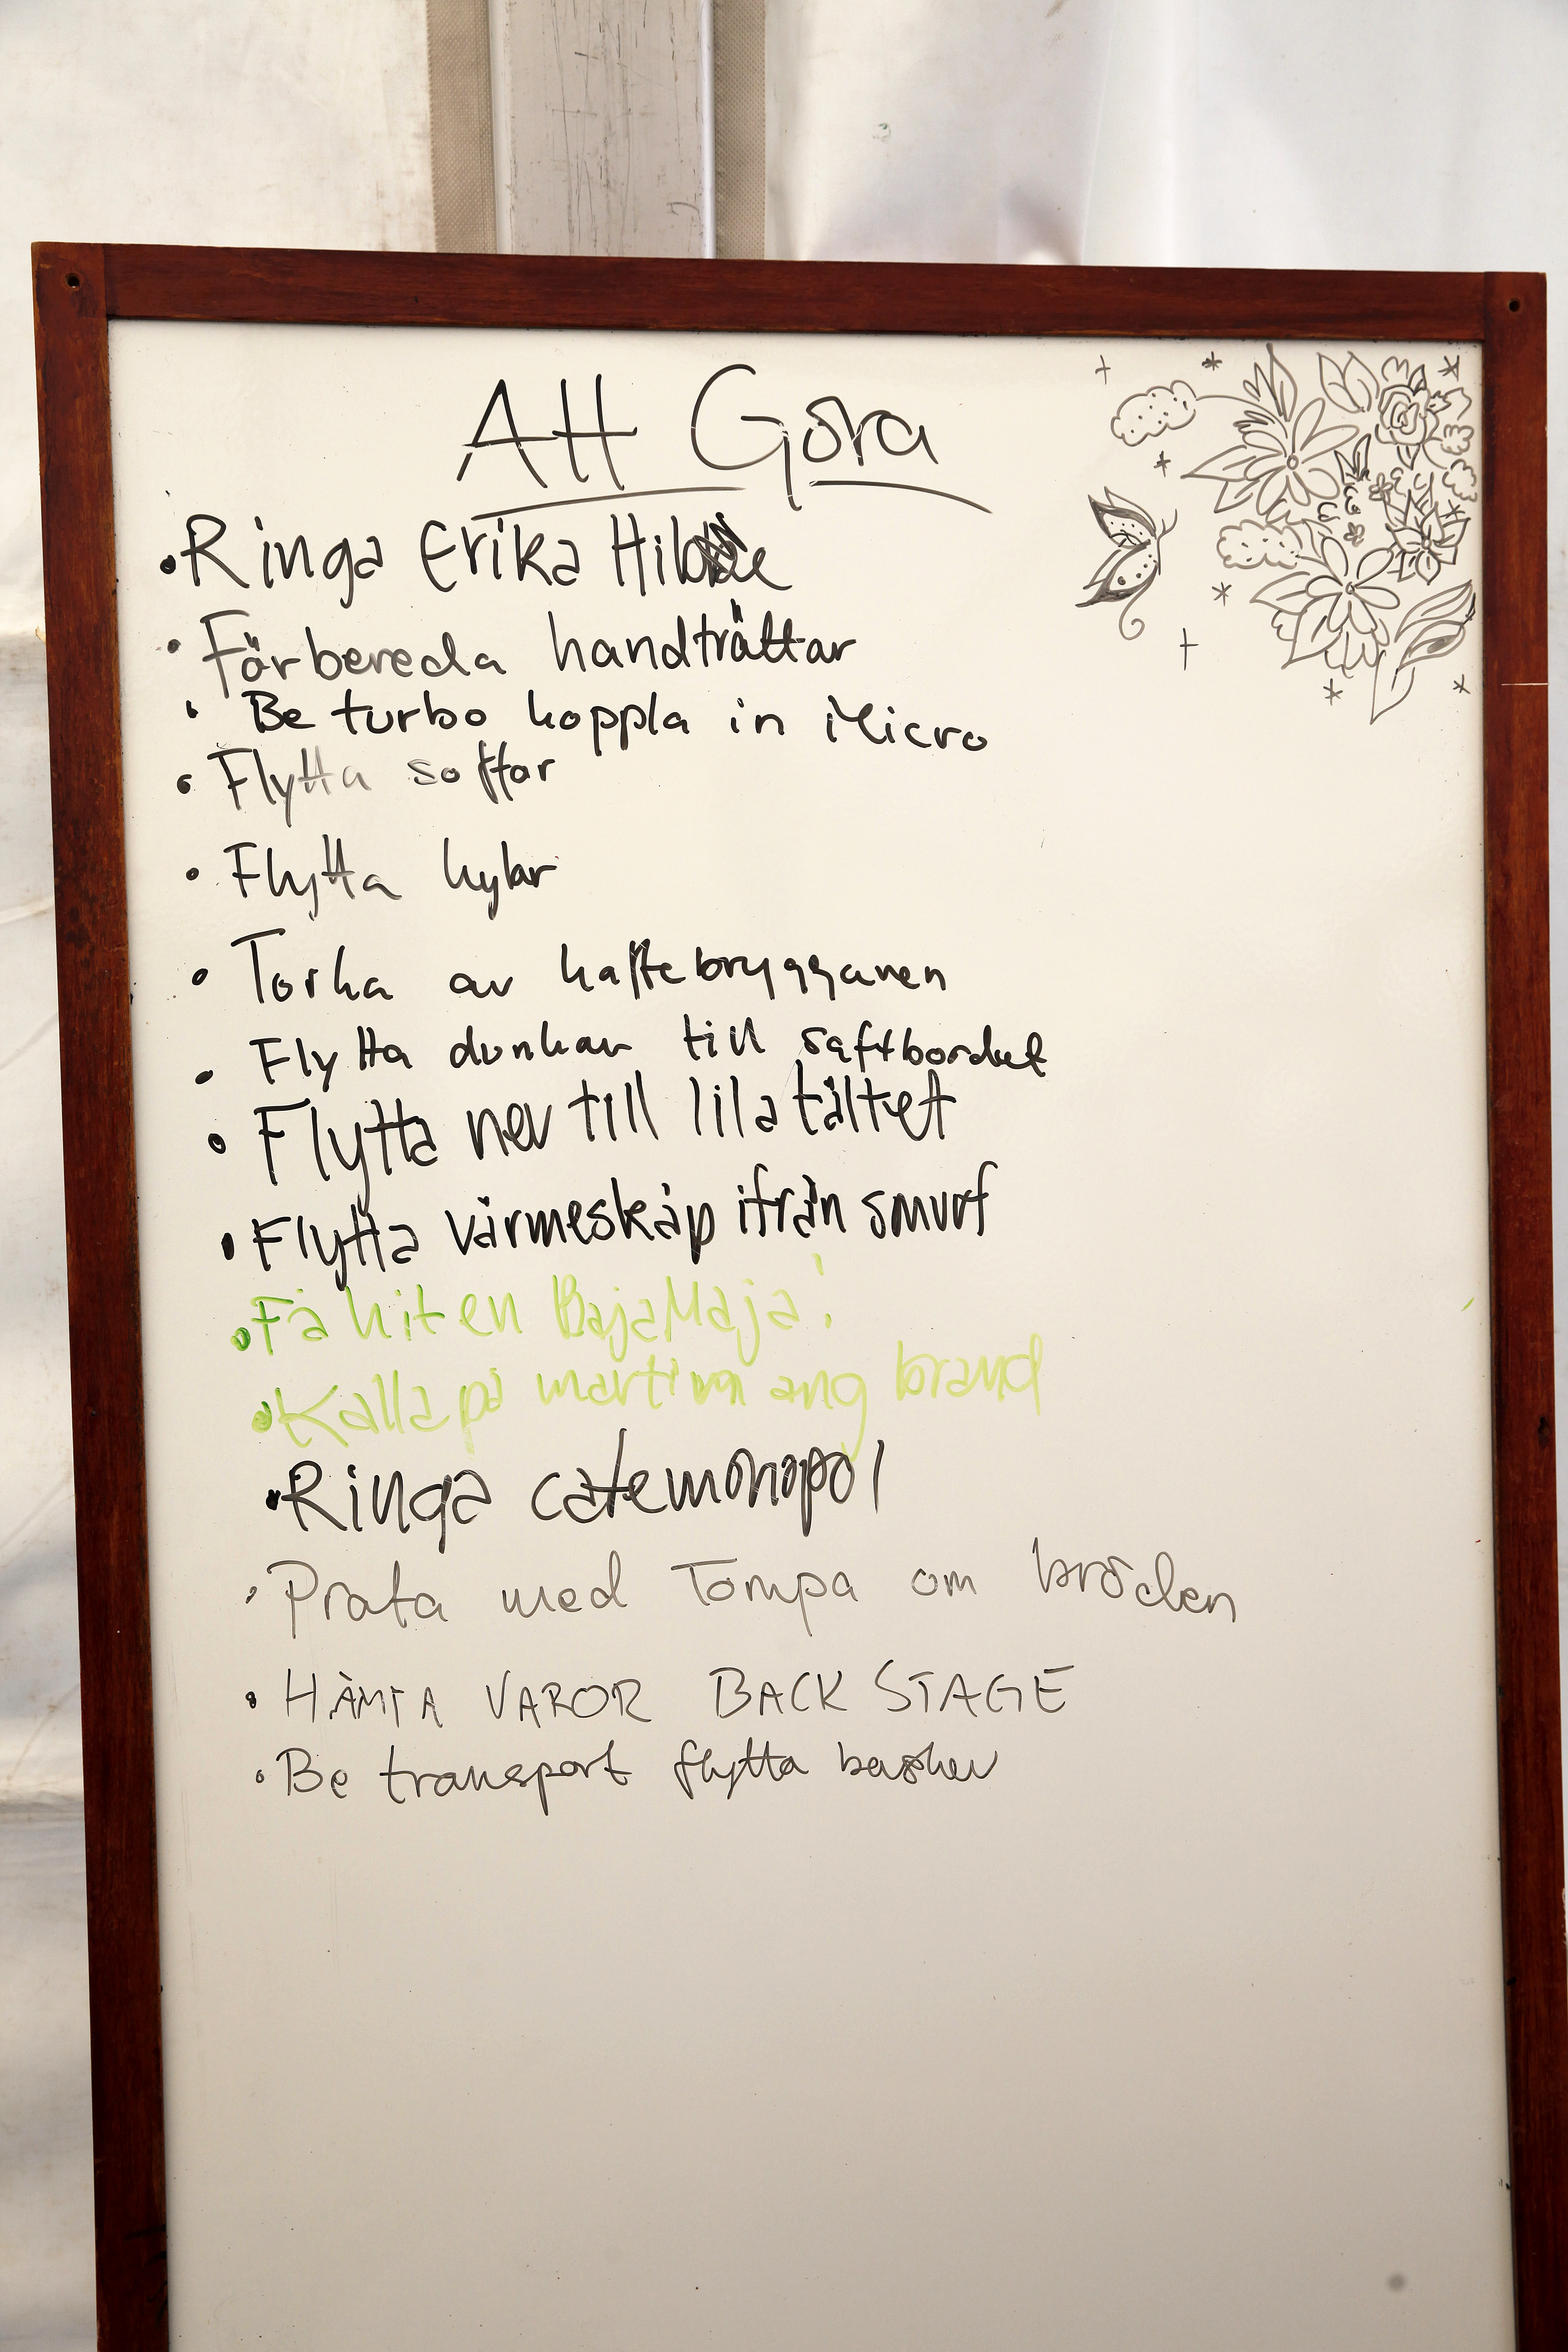 Att Göra
• Ringa Erika
• Förbereda handtvättar
• Be turbo koppla in Micro
• Flytta soffor
• Flytta kylar
• Torka av kaffebryggaren
• Flytta dunkar till saftbordet
• Flytta ner till lila tältet
• Flytta värmeskåp ifrån smurf
• Få hit en BajaMaja!
• Kalla på martina ang brand
• Ringa cafemonopol
• Prata med Tompa om bröden
• HÄMTA VAROR BACK STAGE
• Be transport flytta